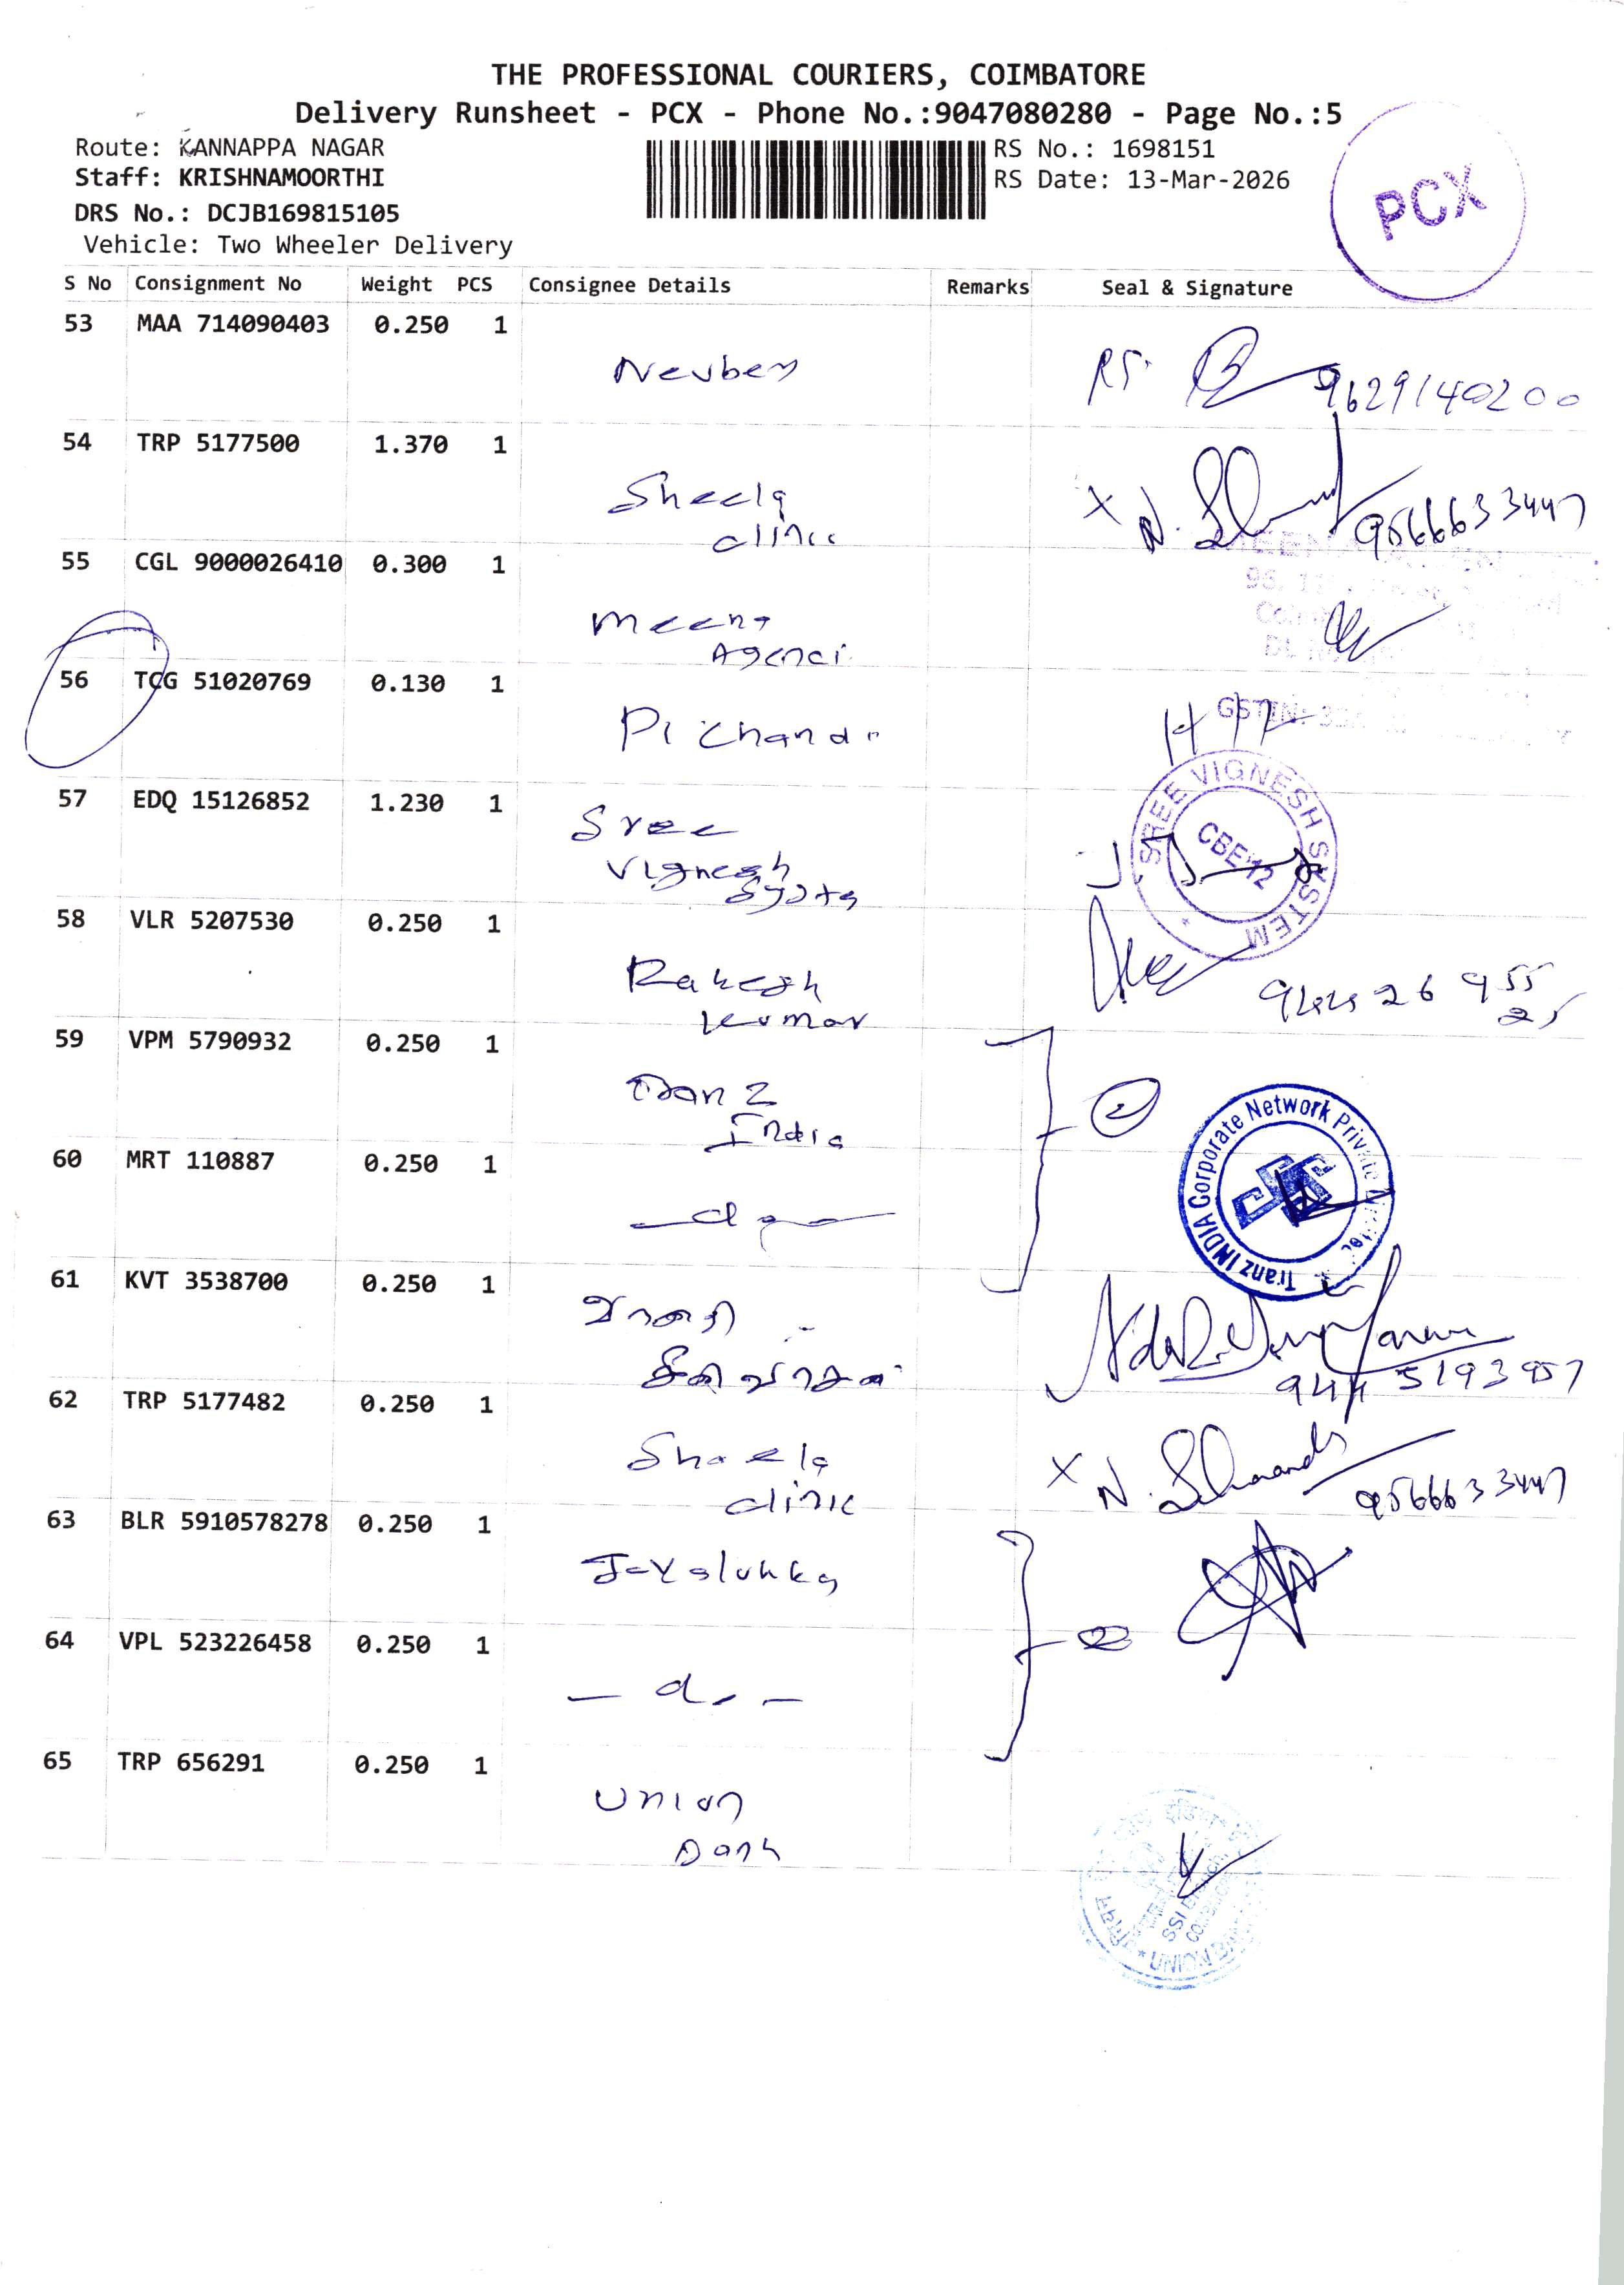 THE PROFESSIONAL COURIERS, COIMBATORE
Delivery Runsheet - PCX - Phone No.:9047080280 - Page No.:5
Route: KANNAPPA NAGAR
Staff: KRISHNAMOORTHI
DRS No.: DCJB169815105
Vehicle: Two Wheeler Delivery
RS No.: 1698151
RS Date: 13-Mar-2026
PCX
S No Consignment No Weight PCS Consignee Details Remarks Seal & Signature
53 MAA 714090403 0.250 1
Neuberg
9629140200
54 TRP 5177500 1.370 1
Sheela
clinic
N.
9566633447
55 CGL 9000026410 0.300 1
Meena
Agenci
56 TCG 51020769 0.130 1
Pichandi
GSTIN: 33
57 EDQ 15126852 1.230 1
Sree
Vignesh
Systs
SREE VIGNESH SYSTEM
CBE'12
58 VLR 5207530 0.250 1
Rakesh
kumar
59 VPM 5790932 0.250 1
Tranz
India
2
Tranz INDIA Corporate Network Private
60 MRT 110887 0.250 1
61 KVT 3538700 0.250 1
944 5193957
62 TRP 5177482 0.250 1
Sheela
clinic
N.
9566633447
63 BLR 5910578278 0.250 1
Joyalukka
64 VPL 523226458 0.250 1
65 TRP 656291 0.250 1
Union
Bank
UNION